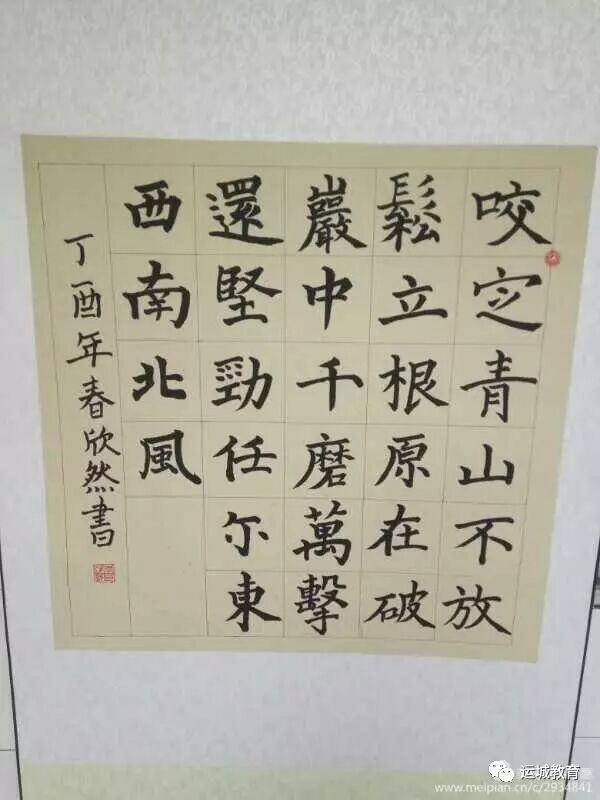 咬定青山不放
鬆立根原在破
巖中千磨萬擊
還堅勁任尓東
西南北風
丁酉年春欣然書
运城教育
www.meipian.cn/c/2934841